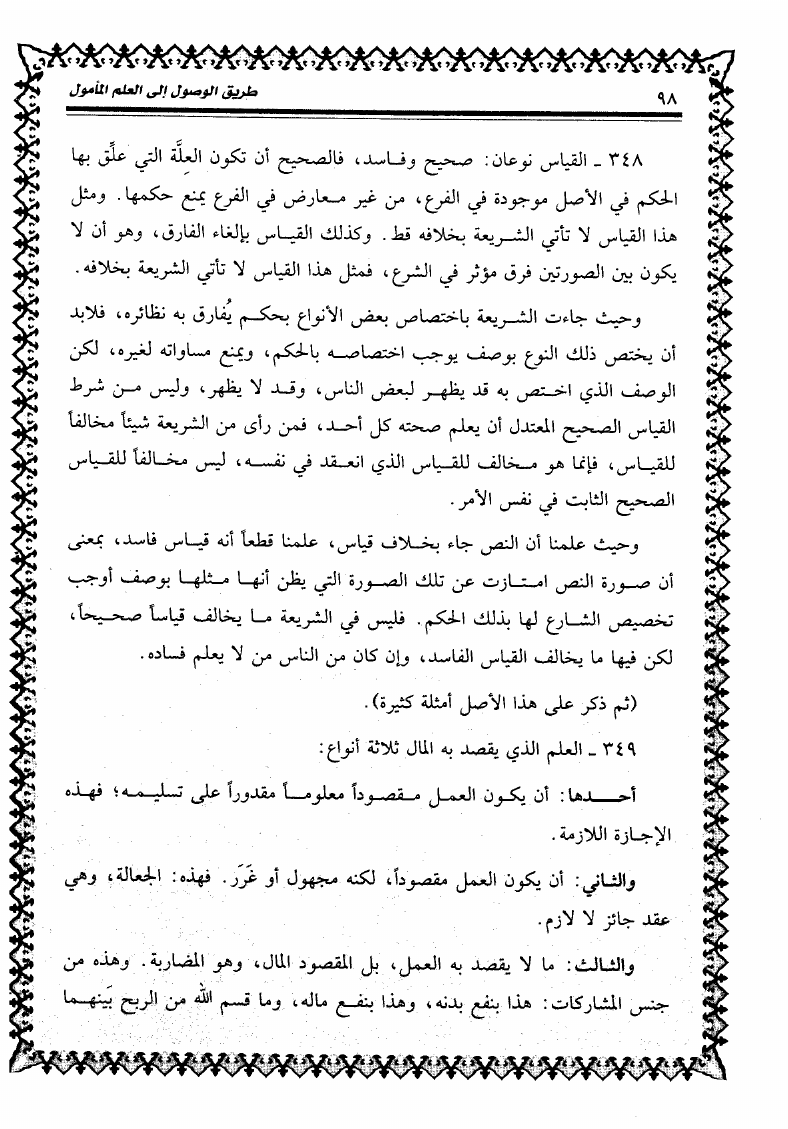 ٩٨
طريق الوصول إلى العلم المأمول
٣٤٨ ـ القياس نوعان: صحيح وفاسد، فالصحيح أن تكون العِلَّة التي علِّق بها
الحكم في الأصل موجودة في الفرع، من غير معارض في الفرع يمنع حكمها. ومثل
هذا القياس لا تأتي الشريعة بخلافه قط. وكذلك القياس بإلغاء الفارق، وهو أن لا
يكون بين الصورتين فرق مؤثر في الشرع، فمثل هذا القياس لا تأتي الشريعة بخلافه.
وحيث جاءت الشريعة باختصاص بعض الأنواع بحكم يُفارق به نظائره، فلابد
أن يختص ذلك النوع بوصف يوجب اختصاصه بالحكم، ويمنع مساواته لغيره، لكن
الوصف الذي اختص به قد يظهر لبعض الناس، وقد لا يظهر، وليس من شرط
القياس الصحيح المعتدل أن يعلم صحته كل أحد، فمن رأى من الشريعة شيئاً مخالفاً
للقياس، فإنما هو مخالف للقياس الذي انعقد في نفسه، ليس مخالفاً للقياس
الصحيح الثابت في نفس الأمر.
وحيث علمنا أن النص جاء بخلاف قياس، علمنا قطعاً أنه قياس فاسد، بمعنى
أن صورة النص امتازت عن تلك الصورة التي يظن أنها مثلها بوصف أوجب
تخصيص الشارع لها بذلك الحكم. فليس في الشريعة ما يخالف قياساً صحيحاً،
لكن فيها ما يخالف القياس الفاسد، وإن كان من الناس من لا يعلم فساده.
(ثم ذكر على هذا الأصل أمثلة كثيرة).
٣٤٩ ـ العلم الذي يقصد به المال ثلاثة أنواع:
أحدها: أن يكون العمل مقصوداً معلوماً مقدوراً على تسليمه؛ فهذه
الإجازة اللازمة.
والثاني: أن يكون العمل مقصوداً، لكنه مجهول أو غَرَر. فهذه: الجعالة، وهي
عقد جائز لا لازم.
والثالث: ما لا يقصد به العمل، بل المقصود المال، وهو المضاربة. وهذه من
جنس المشاركات: هذا بنفع بدنه، وهذا بنفع ماله، وما قسم الله من الربح بَينهما